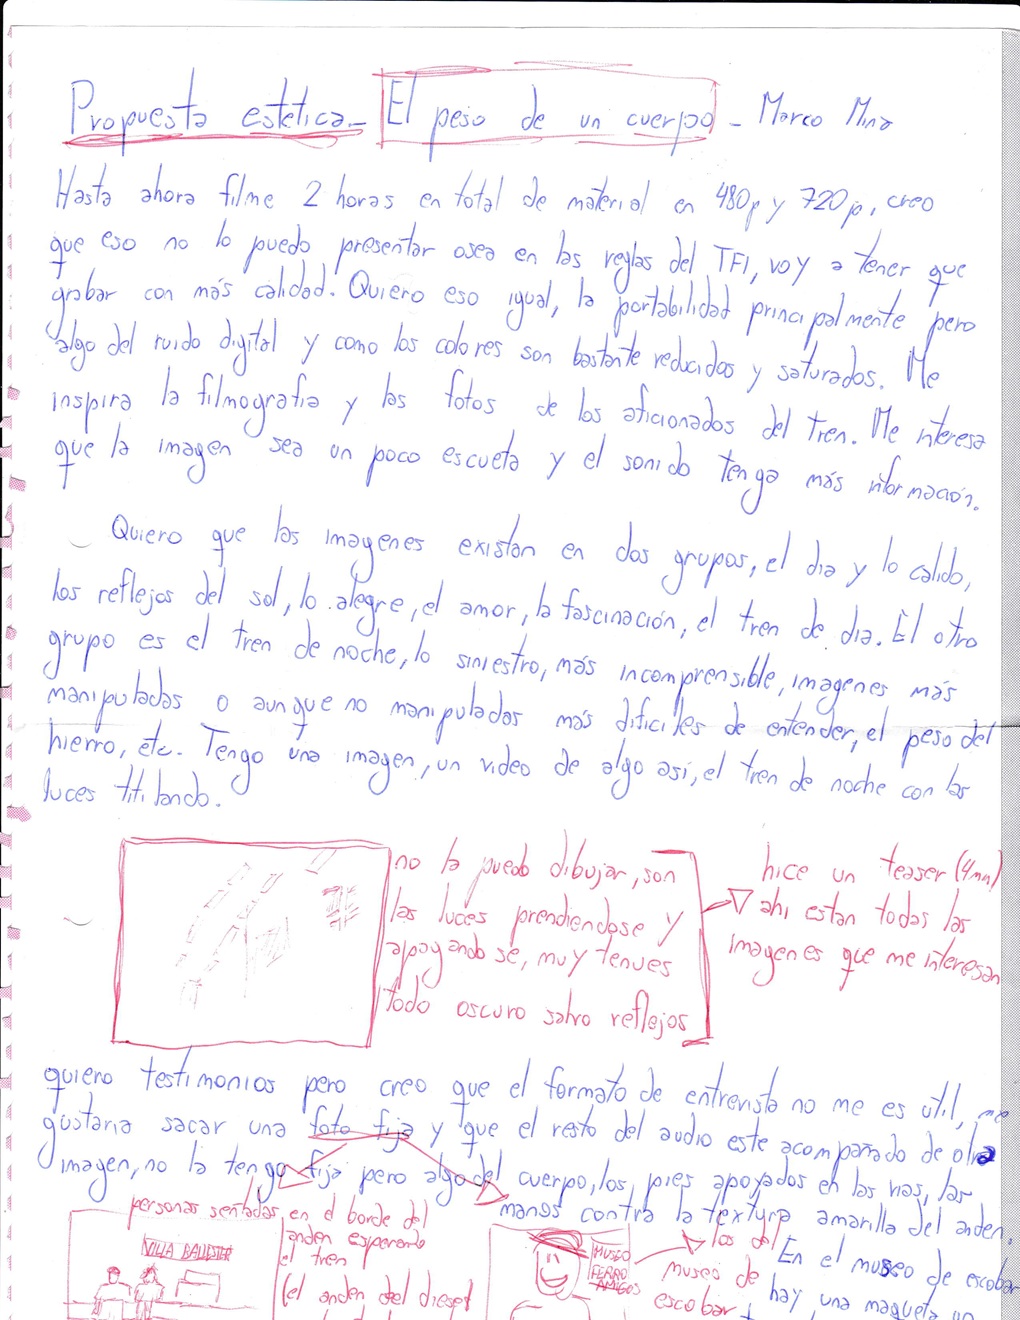 Propuesta estética_ El peso de un cuerpo - Marco Mina
Hasta ahora filme 2 horas en total de material en 480p y 720p, creo
que eso no lo puedo presentar osea en las reglas del TFI, voy a tener que
grabar con más calidad. Quiero eso igual, la portabilidad principalmente pero
algo del ruido digital y como los colores son bastante reducidos y saturados. Me
inspira la filmografia y las fotos de los aficionados del tren. Me interesa
que la imagen sea un poco escueta y el sonido tenga más información.
Quiero que las imagenes existan en dos grupos, el dia y lo calido,
los reflejos del sol, lo alegre, el amor, la fascinación, el tren de dia. El otro
grupo es el tren de noche, lo siniestro, más incomprensible, imagenes más
manipuladas o aunque no manipuladas más dificiles de entender, el peso del
hierro, etc. Tengo una imagen, un video de algo asi, el tren de noche con las
luces titilando.
no la puedo dibujar, son
las luces prendiendose y
apagandose, muy tenues
todo oscuro salvo reflejos
hice un teaser (4mn)
ahi estan todas las
imagenes que me interesan
quiero testimonios pero creo que el formato de entrevista no me es util, me
gustaria sacar una foto fija y que el resto del audio este acompañado de otra
imagen, no la tengo fija pero algo del cuerpo, los pies apoyados en las vias, las
manos contra la textura amarilla del anden.
personas sentadas en el borde del
anden esperando
el tren
(el anden del diesel
VILLA BALLESTER
MUSEO
FERRO
AMIGOS
los del
museo de
escobar
En el museo de escobar
hay una maqueta un